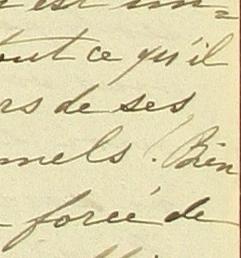 est im=
tout ce qu'il
rs de ses
nels ! Bien
forcé de